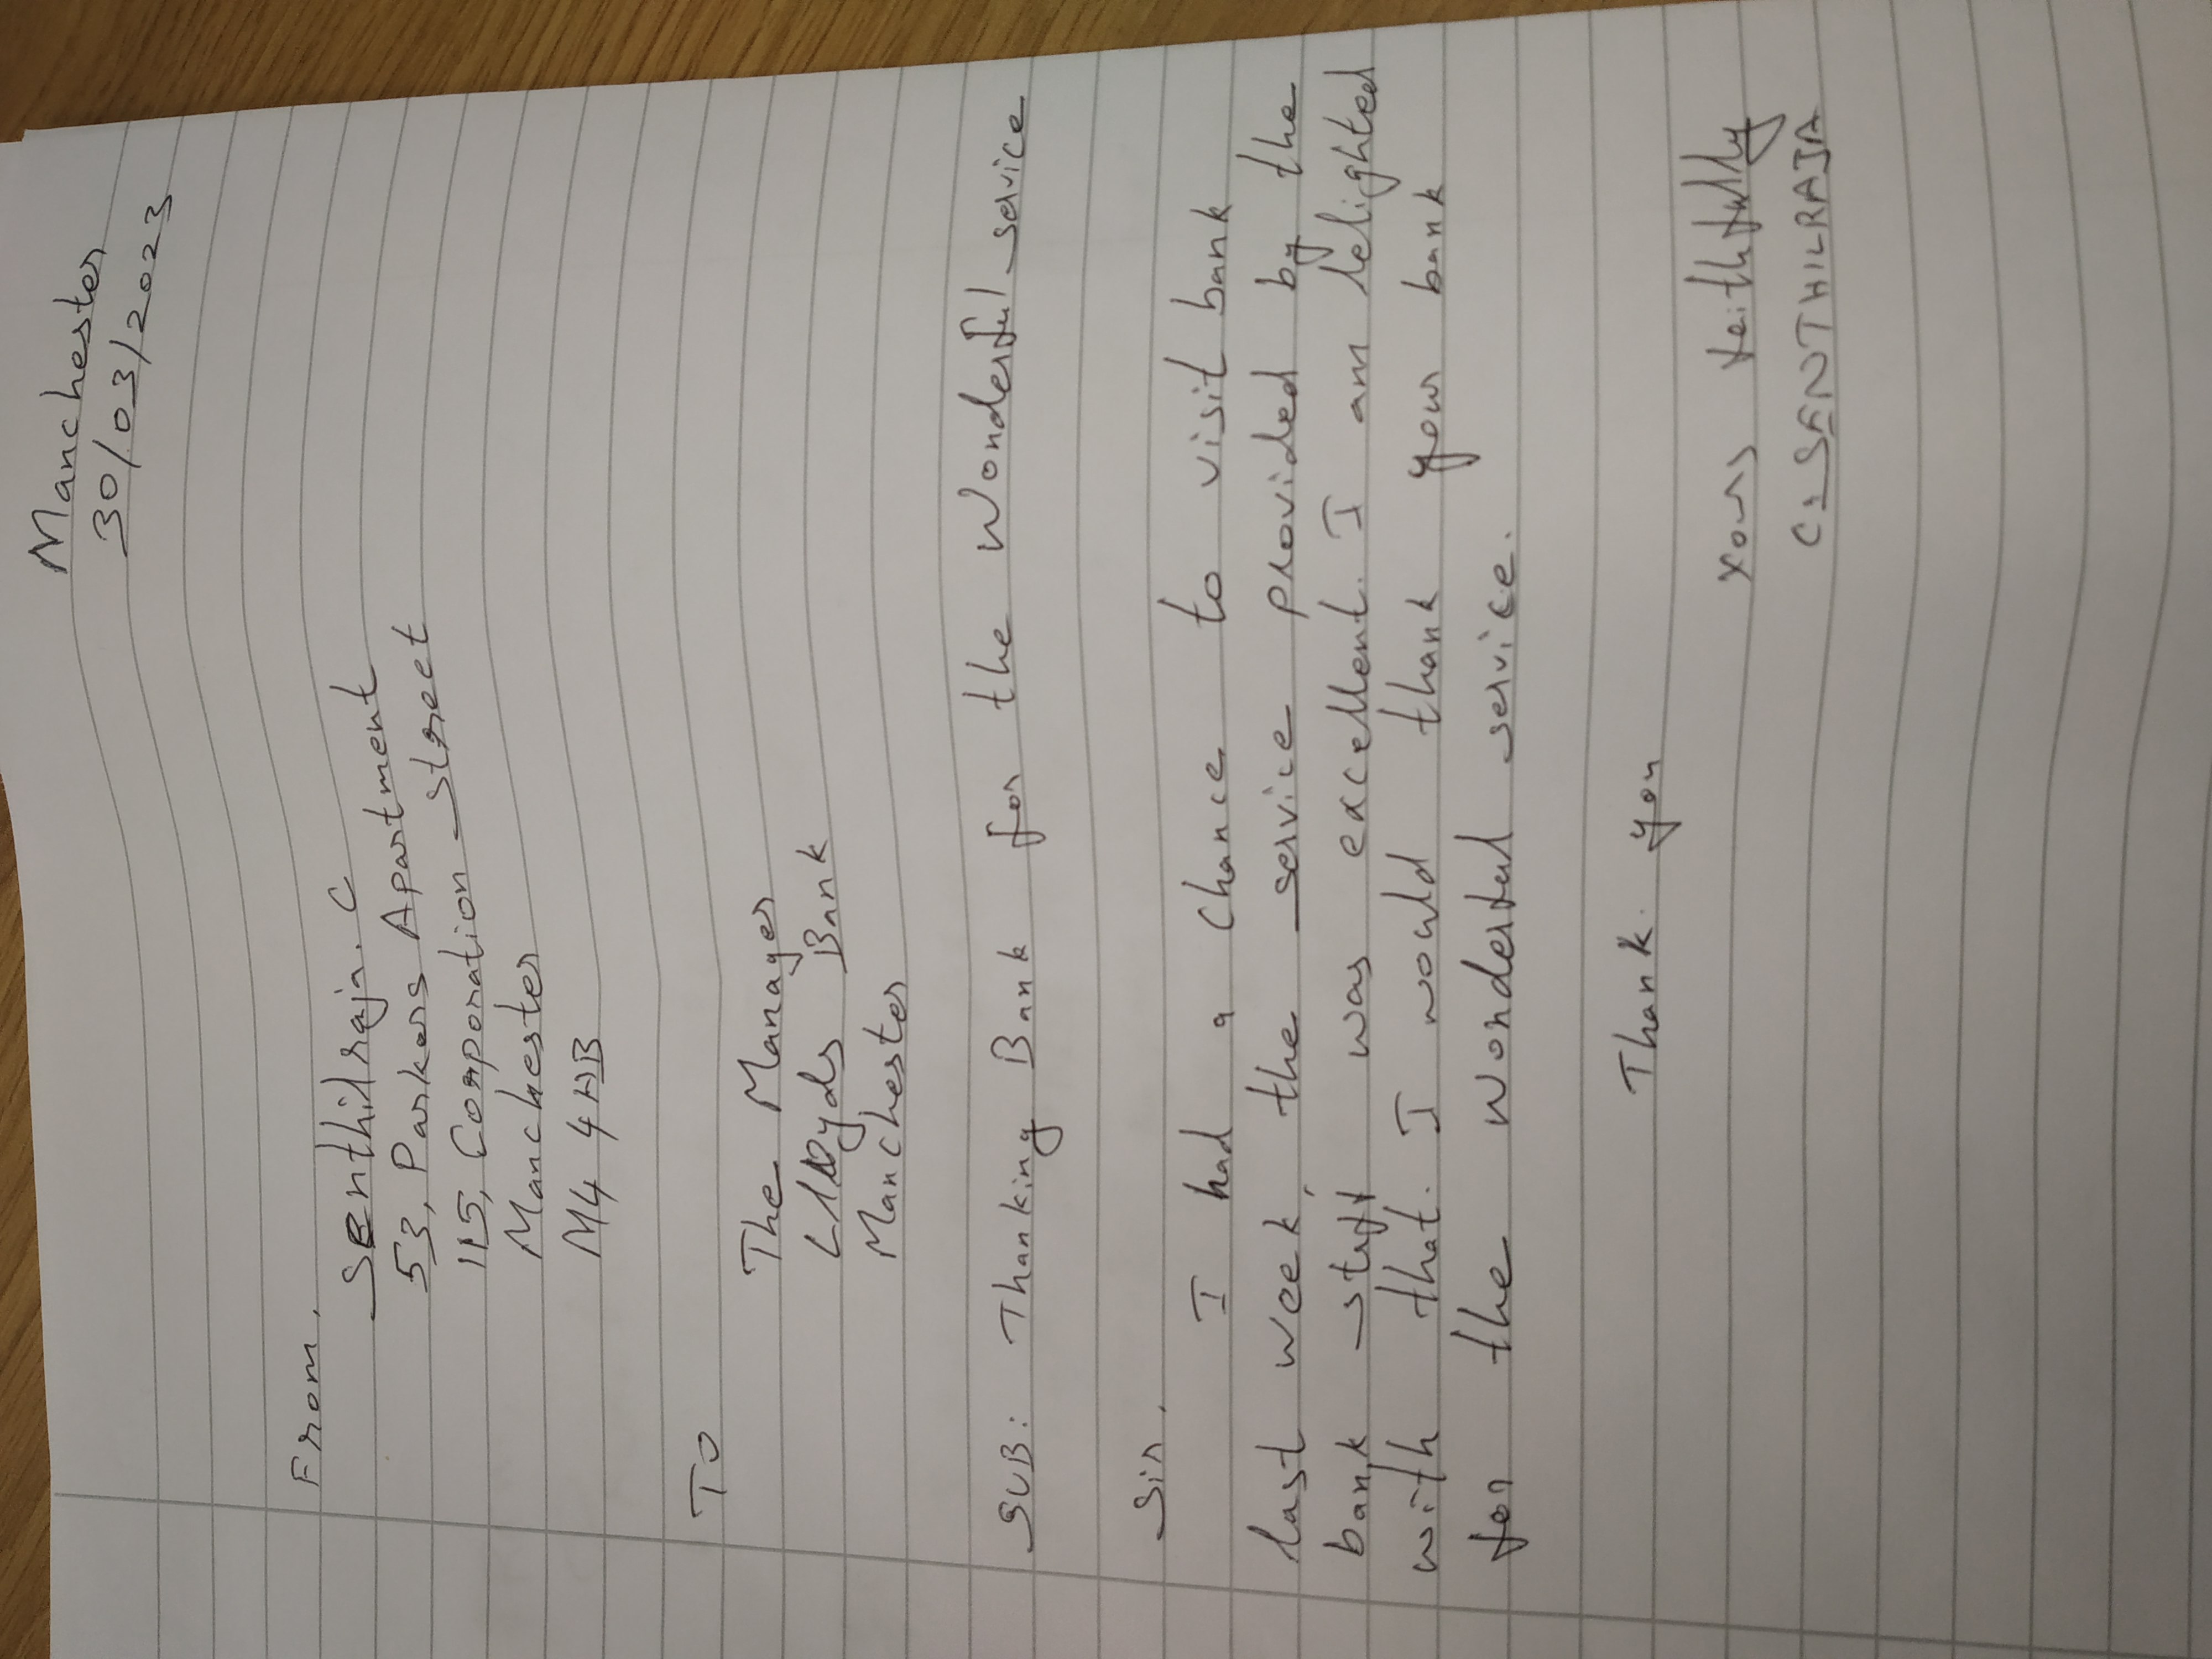 Manchester
30/03/2023
From,
Senthilraja. C
53, Parkers Apartment
115, Corporation Street
Manchester
M4 4HB
TO
The Manager
Lloyds Bank
Manchester
SUB: Thanking Bank for the Wonderful service
Sir,
I had a chance to visit bank
last week, the service provided by the
bank staff was excellent. I am delighted
with that. I would thank your bank
for the wonderful service.
Thank you
Yours faithfully
C. SENTHILRAJA